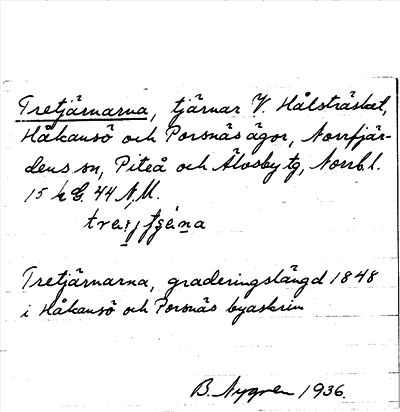 Tretjärnarna, tjärnar V. Hålsträsket,
Håkansö och Porsnäs ägor, Norrfjär-
dens sn, Piteå och Älvsby tg, Norrb. l.
15 k G. 44 N, M.
Tretjärnarna, graderingslängd 1848
i Håkansö och Porsnäs byaskrin
B. Nygren 1936.